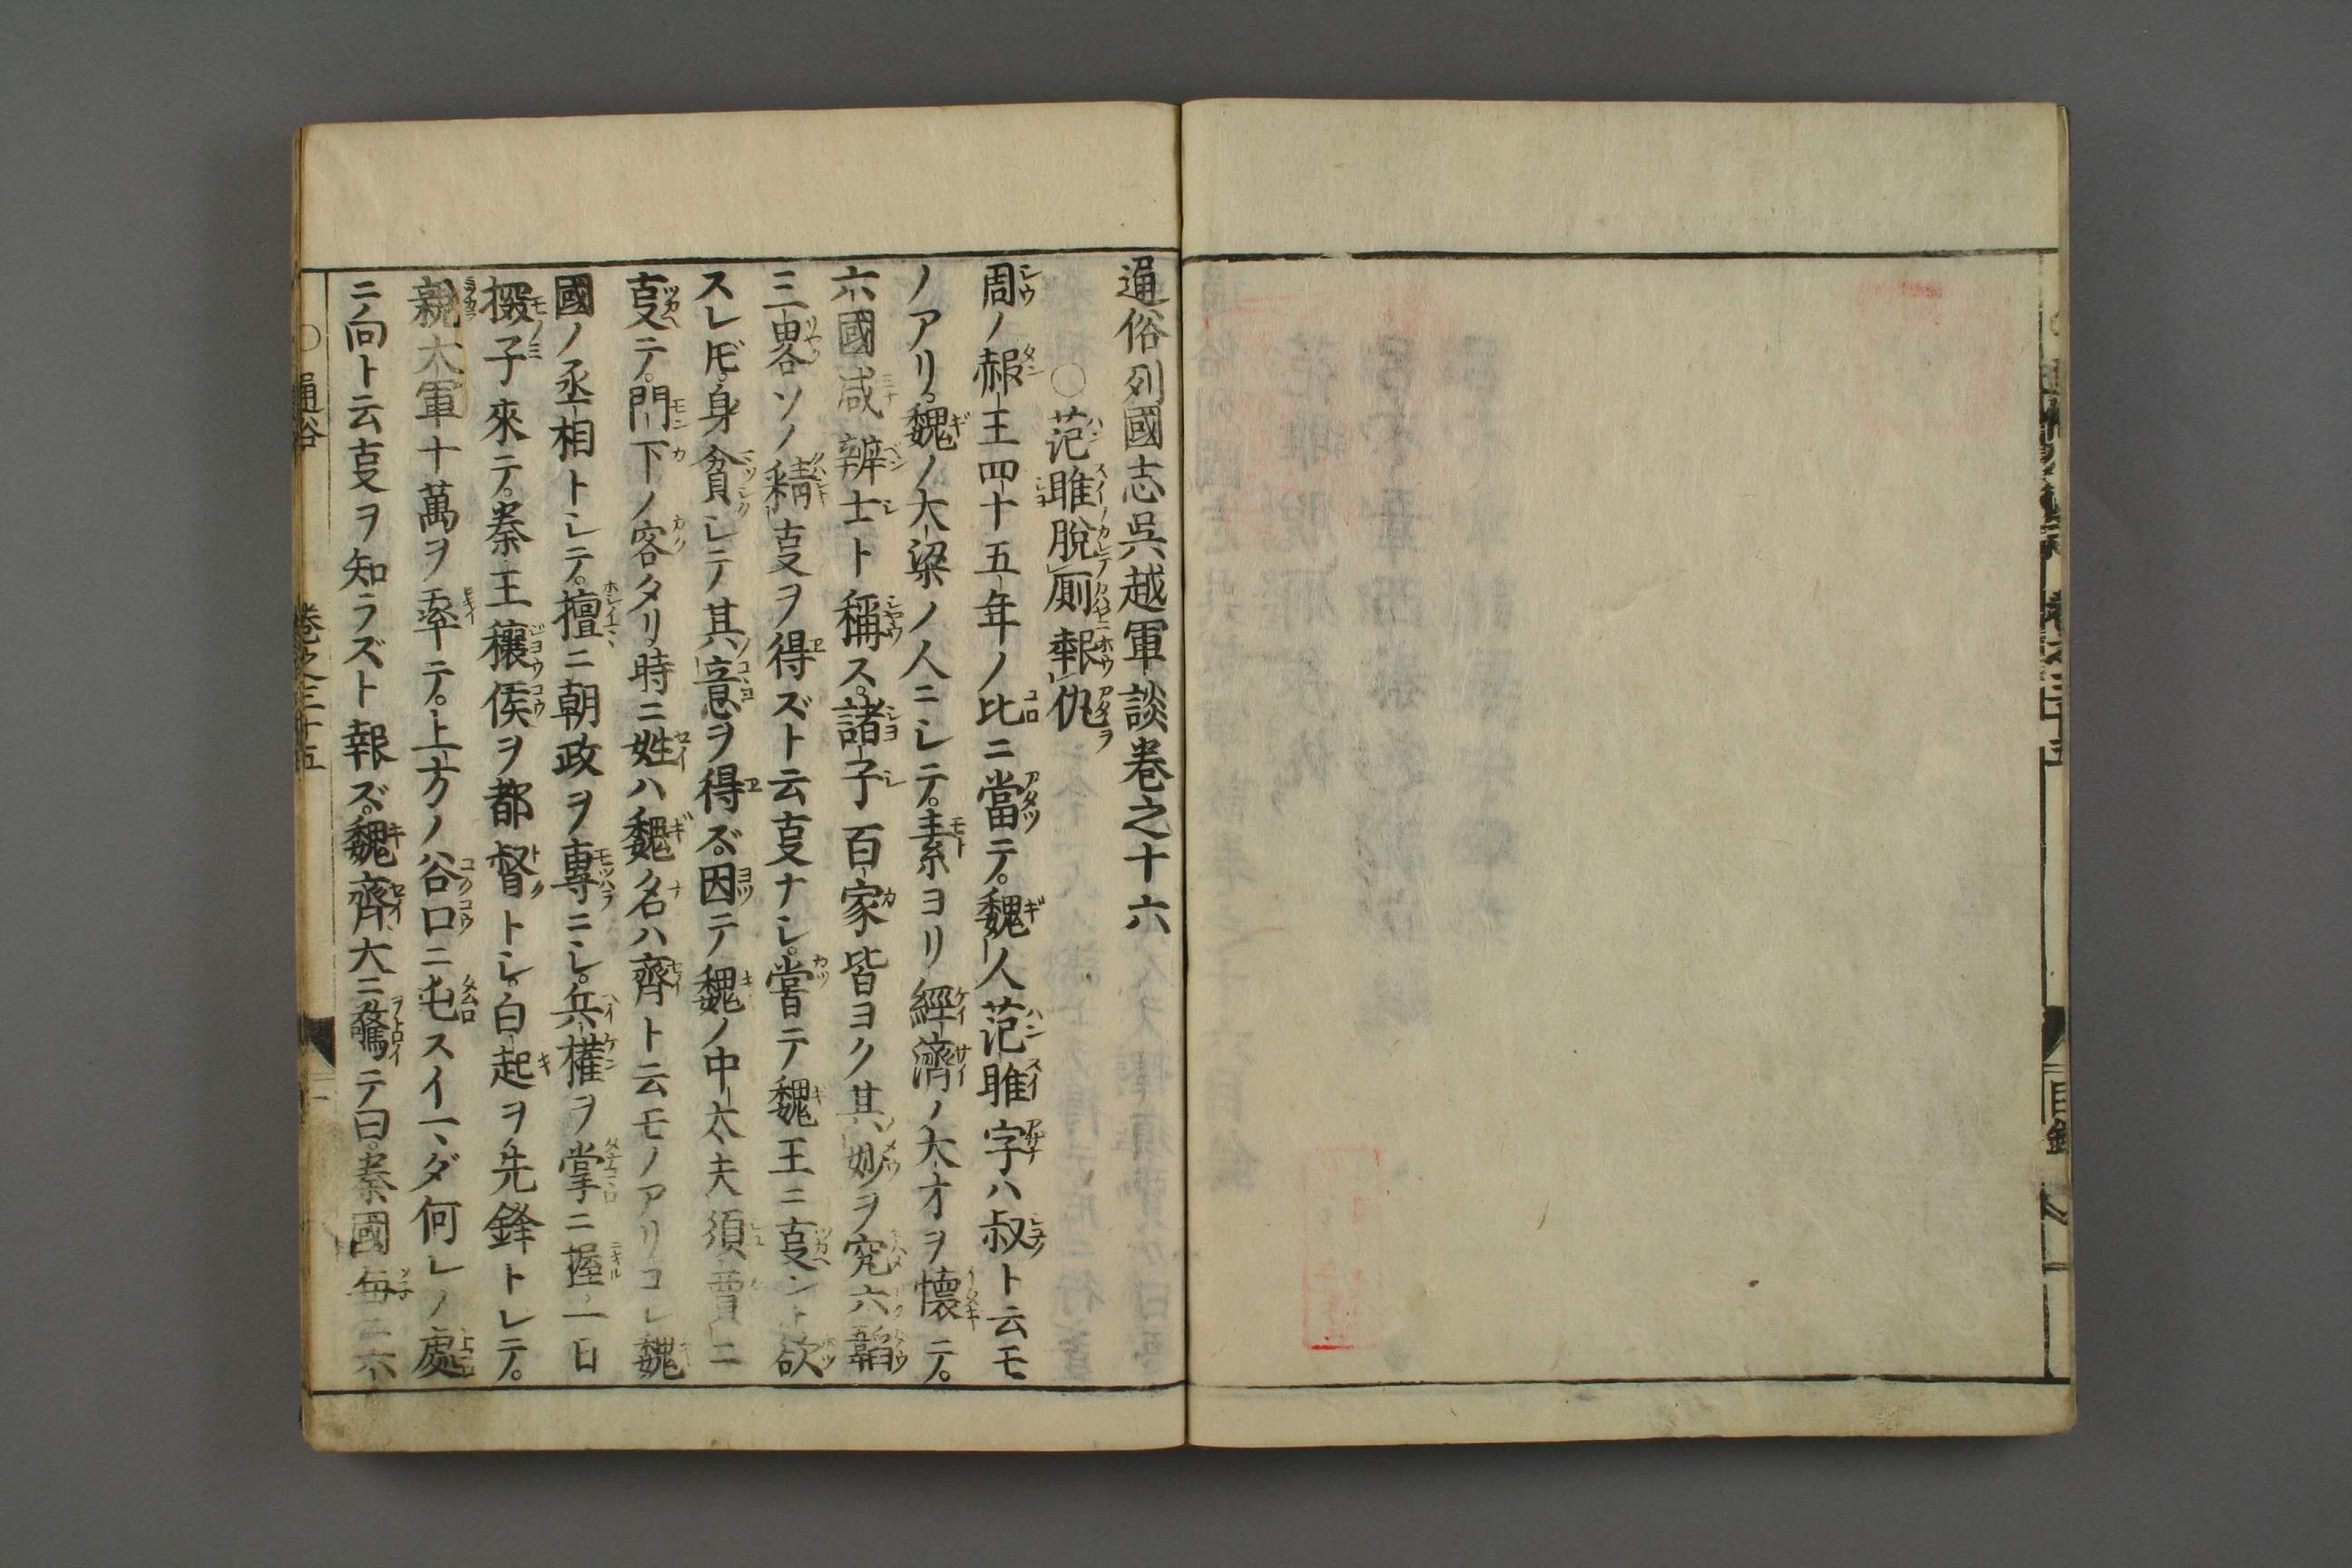 通俗列國志呉越軍談巻之十六
〇范雎脱厠報仇
周ノ赧王四十五年ノ比ニ當テ。魏人范雎字ハ叔ト云モ
ノアリ。魏ノ大梁ノ人ニシテ。素ヨリ經濟ノ大才ヲ懐テ。
六國咸辨士ト稱ス。諸子百家皆ヨク其妙ヲ究六韜
三畧ソノ精叓ヲ得ズト云叓ナシ。嘗テ魏王ニ叓ント欲
スレ𪜈。身貧シテ其意ヲ得ズ。因テ魏ノ中太夫須賈ニ
叓テ。門下ノ客タリ。時ニ姓ハ魏名ハ齊ト云モノアリコレ魏
國ノ丞相トシテ。擅ニ朝政ヲ專ニシ。兵權ヲ掌ニ握一日
探子來テ。秦王穰侯ヲ都督トシ。白起ヲ先鋒トシテ。
親大軍十萬ヲ率テ。上方ノ谷口ニ屯スイマダ何レノ處
ニ向ト云叓ヲ知ラズト報ズ。魏齊大ニ驚テ曰。秦國毎ニ六
〇通俗 巻之三十五 一
目録